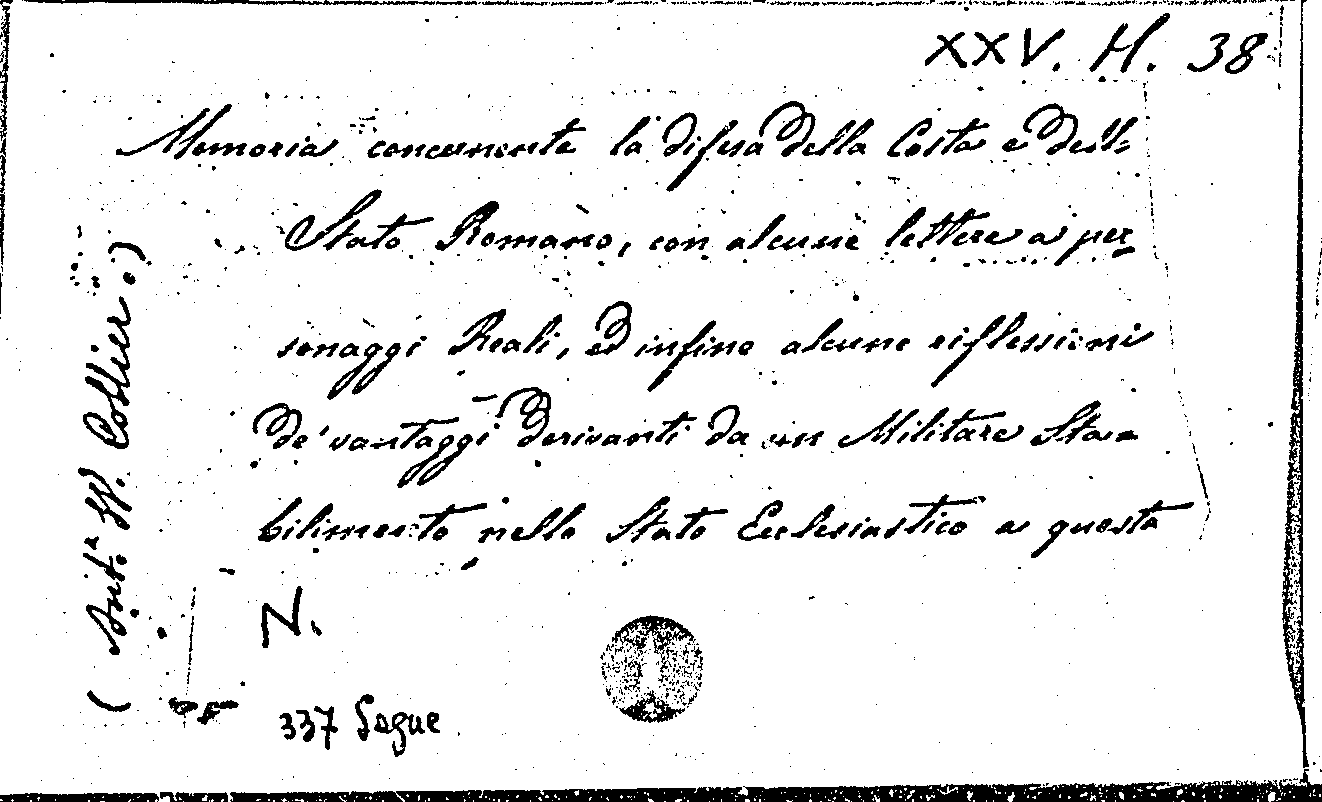 XXV. H. 38
Memoria concernente la difesa della Costa e dell=
Stato Romano, con alcune lettere a per
sonaggi Reali, ed infine alcune riflessioni
de' vantaggi derivanti da un Militare Sta=
bilimento nello Stato Ecclesiastico a questa
N.
337 Segue
( Aut.ª W. Collier.)